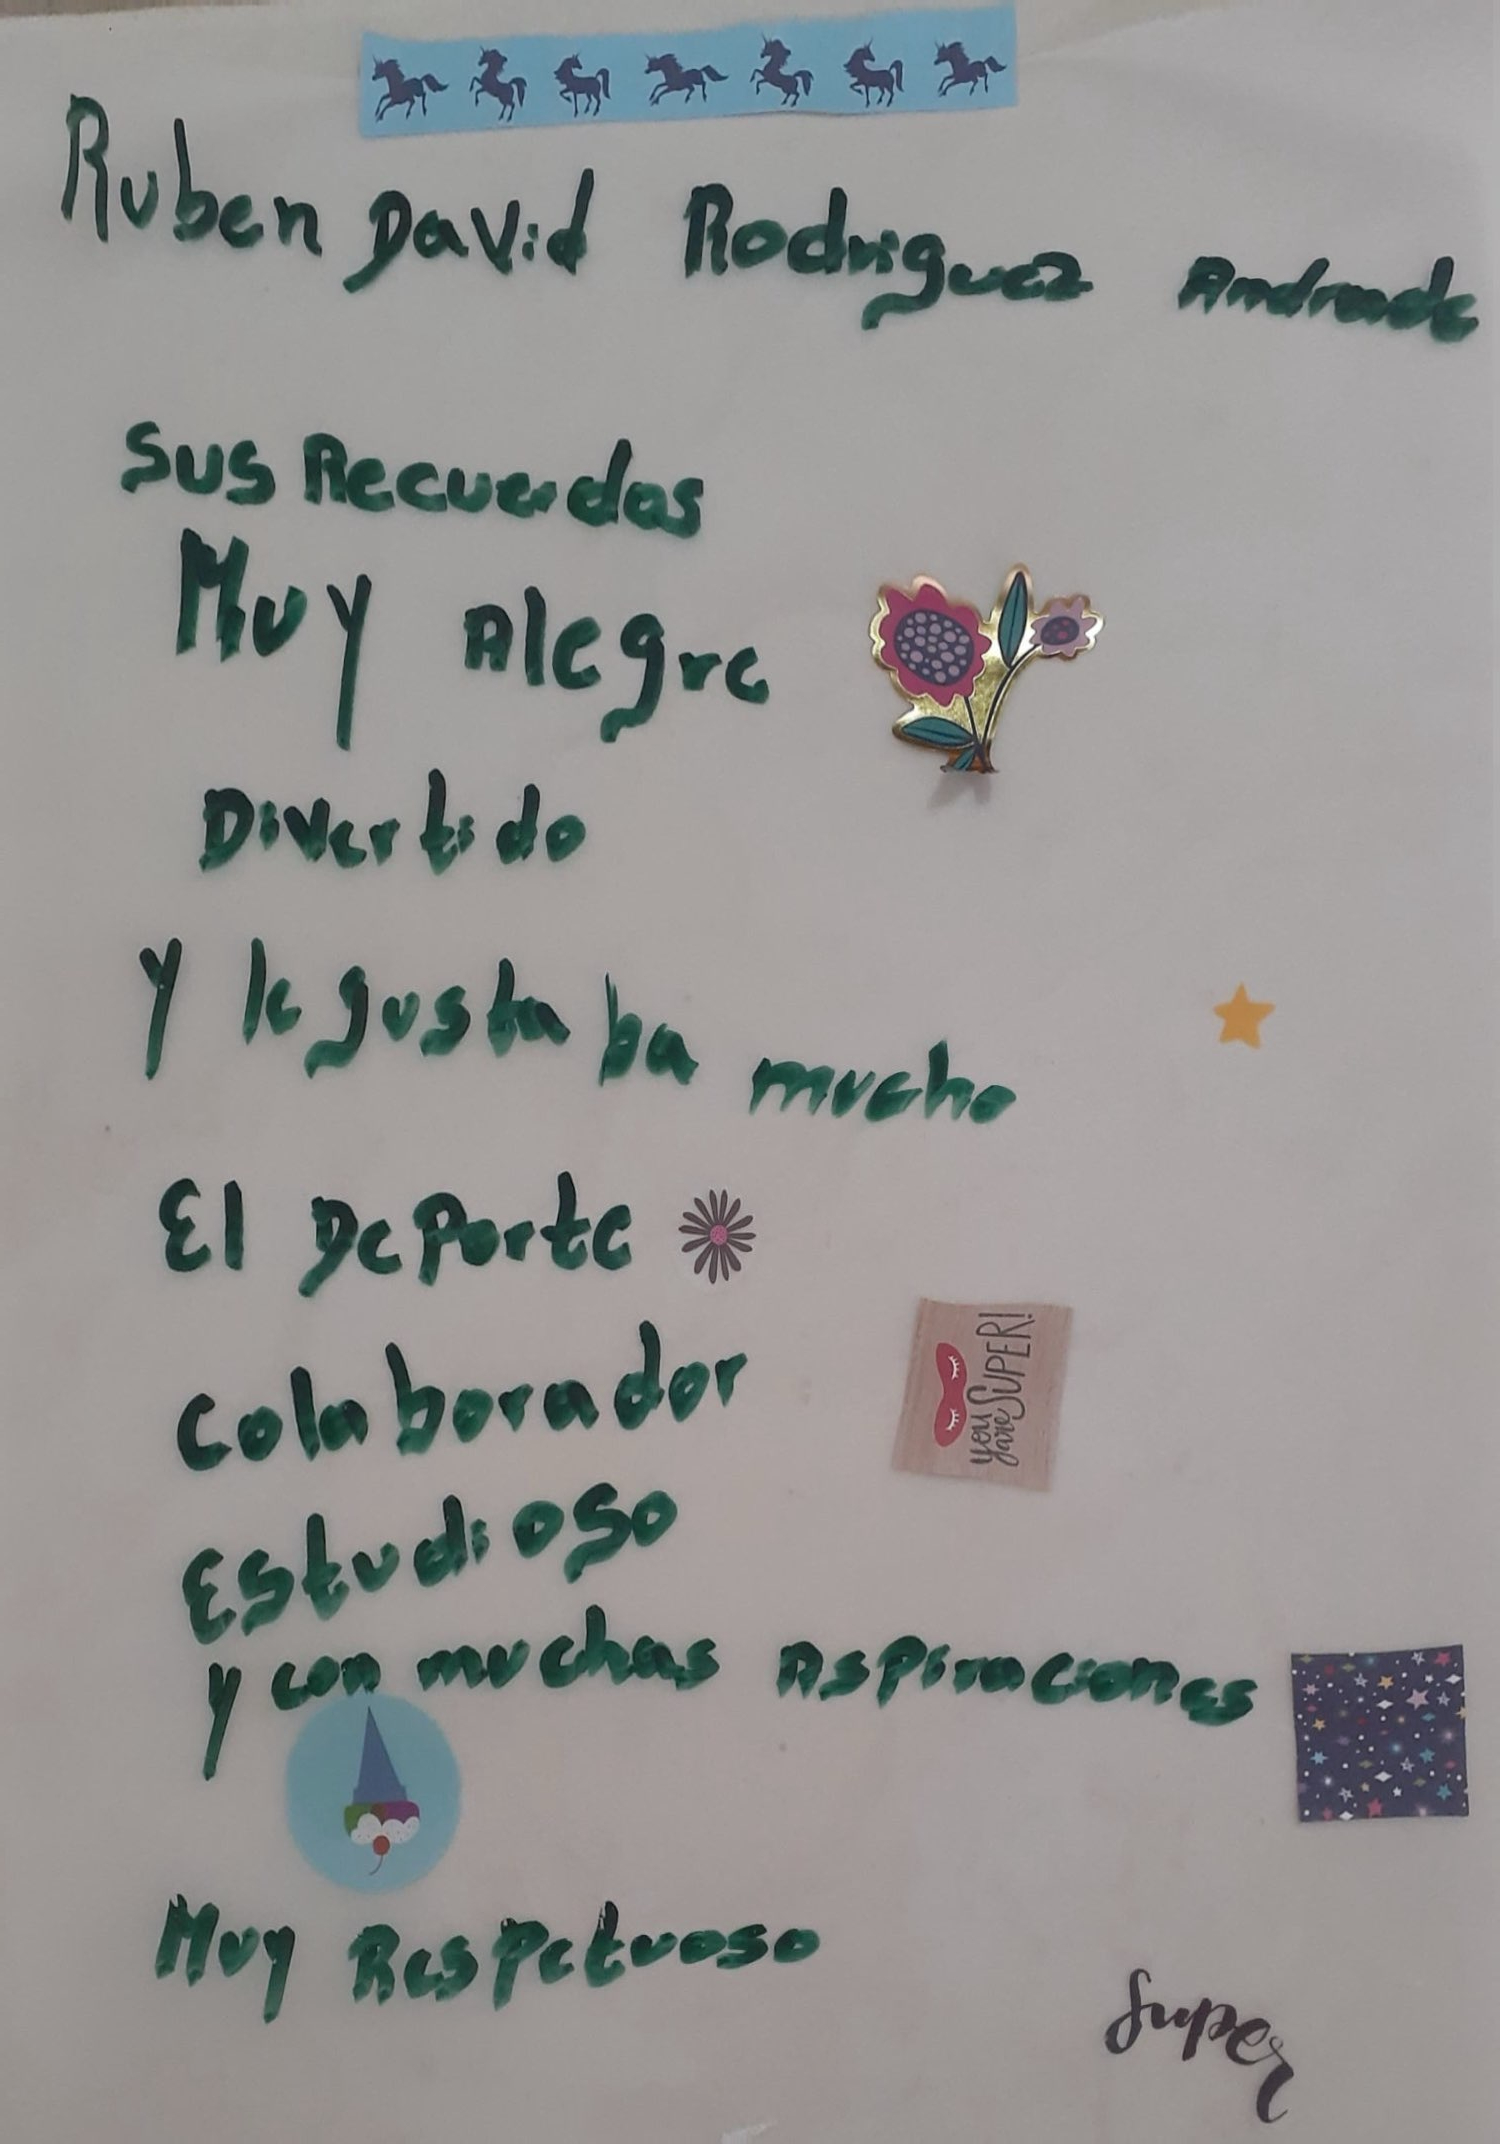 Ruben David Rodriguez Andrade
Sus Recuerdos
Muy Alegre
Divertido
Y le gusta ba mucho
El Deporte
you are SUPER!
Colaborador
Estudioso
y con muchas Aspiraciones
Muy Respetuoso
Super